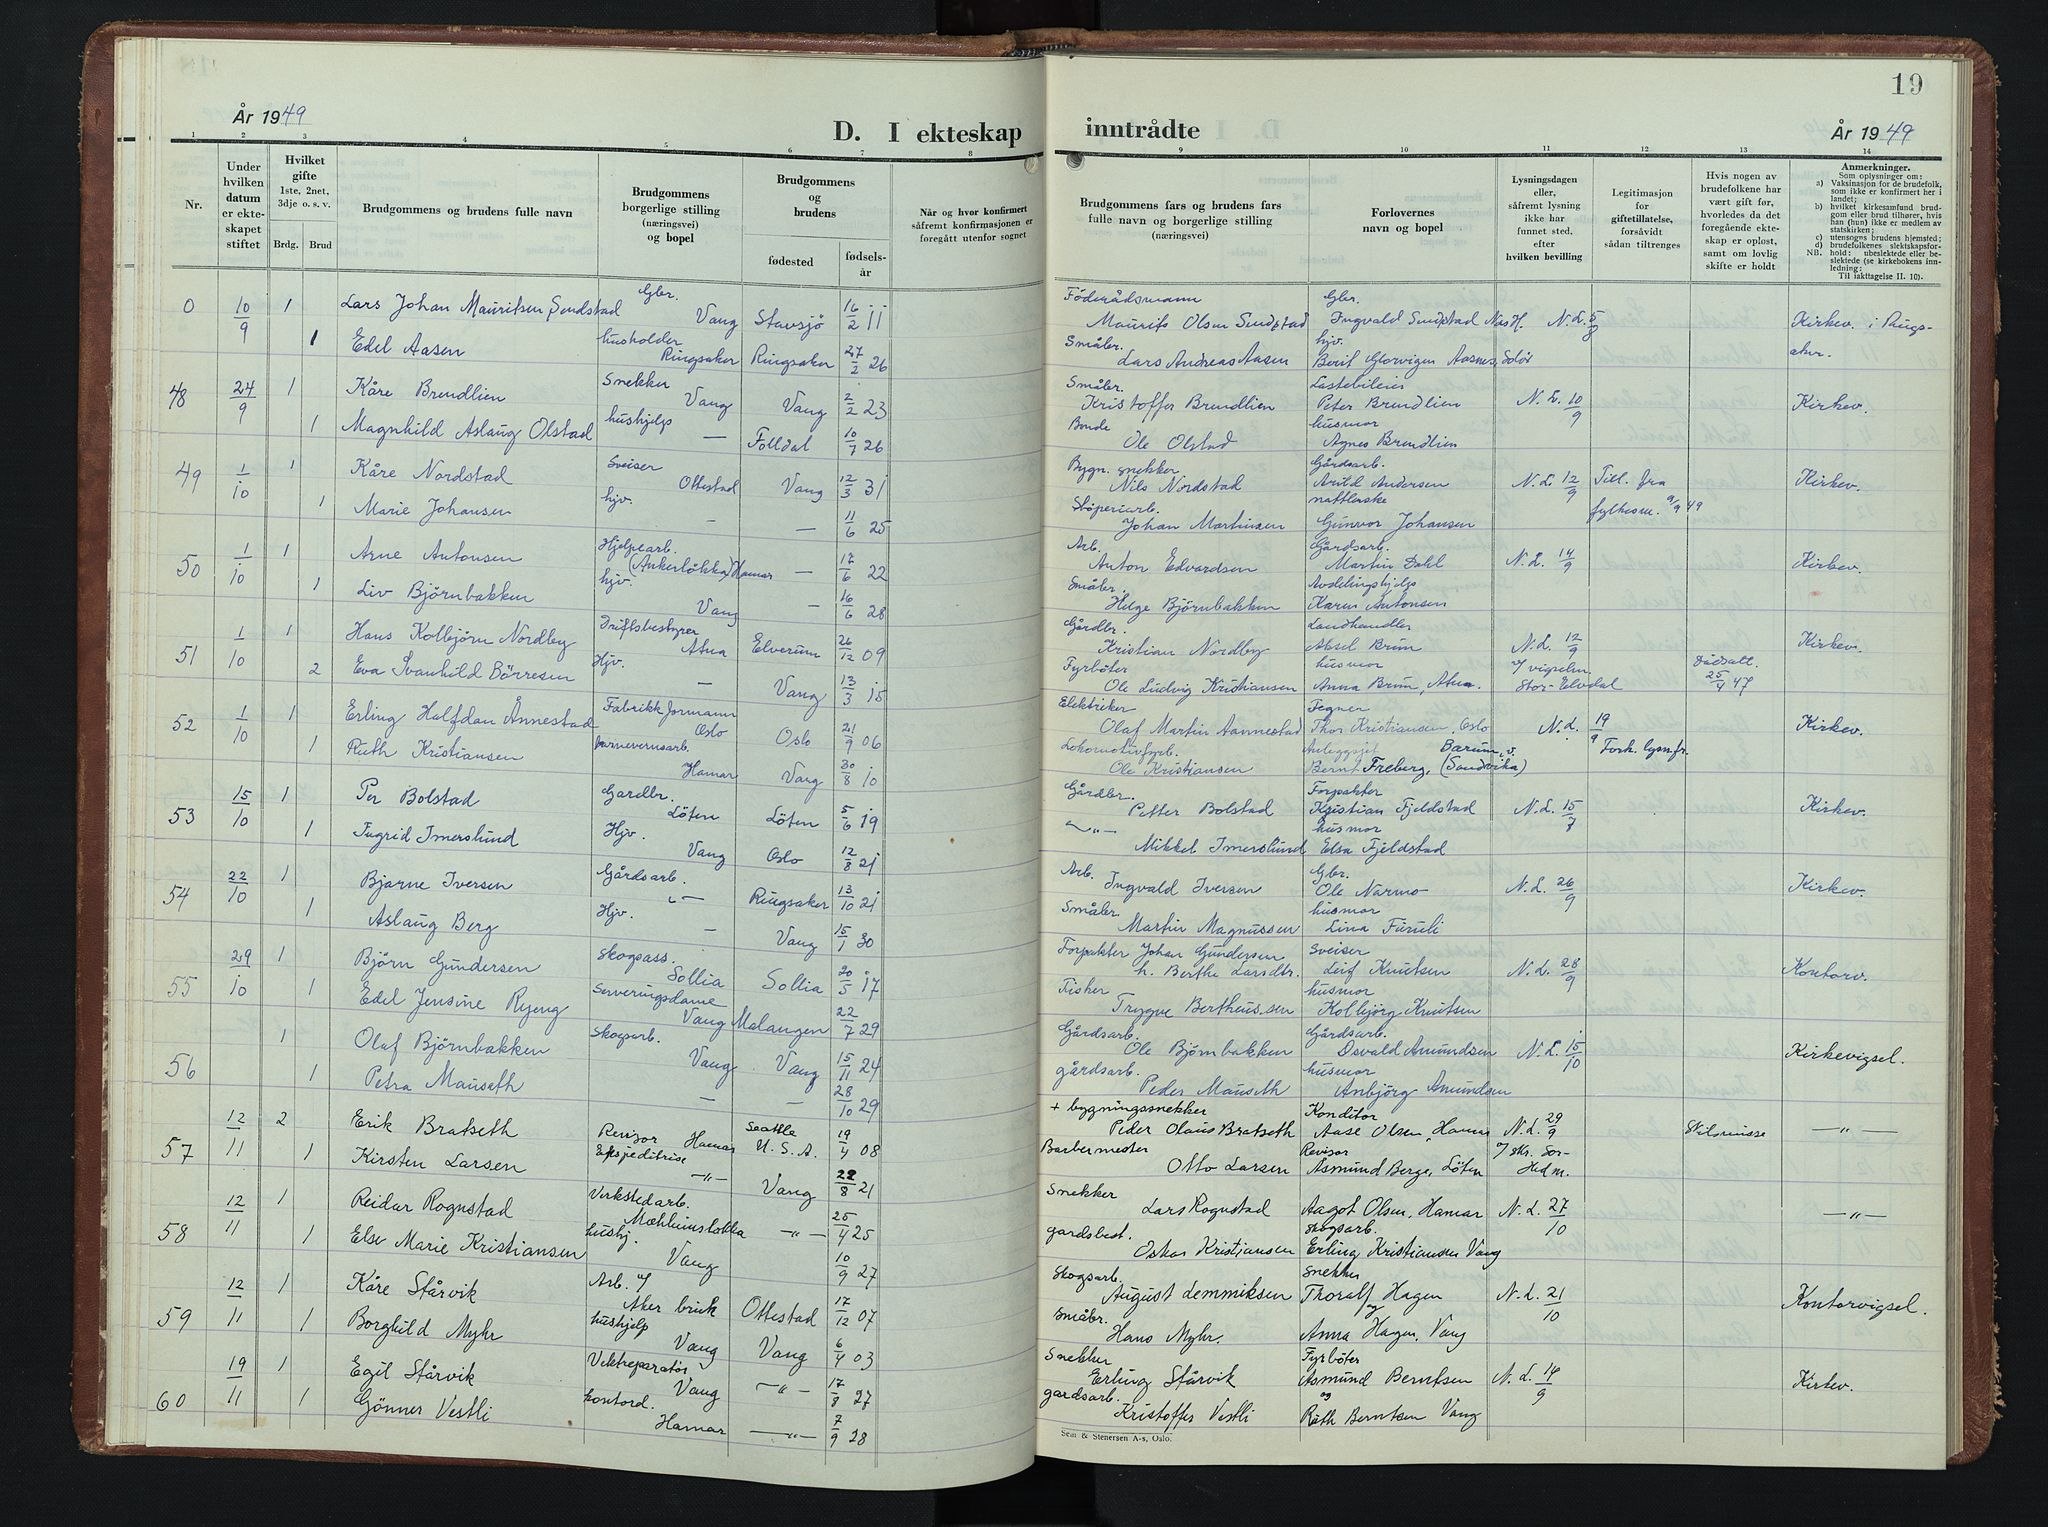 År 1949
D. I ekteskap
inntrådte
19
År 1949
1 2 3 4 5 6 7 8 9 10 11 12 13 14
Nr.
Under hvilken datum er ekteskapet stiftet
Hvilket gifte 1ste, 2net, 3dje o. s. v.
Brdg. Brud
Brudgommens og brudens fulle navn
Brudgommens borgerlige stilling (næringsvei) og bopel
Brudgommens og brudens
fødested
fødsels-år
Når og hvor konfirmert såfremt konfirmasjonen er foregått utenfor sognet
Brudgommens fars og brudens fars fulle navn og borgerlige stilling (næringsvei)
Forlovernes navn og bopel
Lysningsdagen eller, såfremt lysning ikke har funnet sted, efter hvilken bevilling
Legitimasjon for giftetillatelse, forsåvidt sådan tiltrenges
Hvis nogen av brudefolkene har vært gift før, hvorledes da det foregående ekteskap er opløst, samt om lovlig skifte er holdt
Anmerkninger.
Som oplysninger om:
a) Vaksinasjon for de brudefolk, som ikke er konfirmert her i landet;
b) hvilket kirkesamfund brudgom eller brud tilhører, hvis han (hun) ikke er medlem av statskirken;
c) utensogns brudens hjemsted;
d) brudefolkenes slektskapsforhold: ubeslektede eller beslektede (se kirkebokens innledning;
NB.
Til iakttagelse II. 10).
0 10/9 1 Lars Johan Mauritsen Sendstad Gbr. Vang Stavsjö 16/2 11 Föderådsmann Maurits Olsen Sendstad Gbr. Ingvald Sendstad Nes H. N. L. 5/8 Kirkev. i Rings-
1 Edel Aasen husholder Ringsaker Ringsaker 27/2 26 Småbr. Lars Andreas Aasen hjv. Berit Glorvigen Aasnes, Solör aker.
48 24/9 1 Kåre Brendlien Snekker Vang Vang 2/2 23 Småbr. Kristoffer Brendlien Lastebileier Peter Brendlien N. L. 10/9 Kirkev.
1 Magnhild Aslaug Olstad hushjelp — Folldal 10/7 26 Bonde Ole Olstad husmor Agnes Brendlien
49 1/10 1 Kåre Nordstad Sveiser Ottestad Vang 12/3 31 Bygn. snekker Nils Nordstad Gårdsarb. Arild Andersen N. L. 12/9 Till. fra Kirkev.
1 Marie Johansen hjv. — — 11/6 25 Stöperiarb. Johan Martinsen Gunvor Johansen fylkesm. 9/9 49
50 1/10 1 Arne Antonsen Hjelpearb. (Ankerlökka) Hamar — 17/6 22 Arb. Anton Edvardsen Gårdsarb. Martin Dahl N. L. 14/9 Kirkev.
1 Liv Björnbakken hjv. Vang — 16/6 28 Småbr. Helge Björnbakken Avdelingshjelp Karin Antonsen
51 1/10 1 Hans Kolbjörn Nordby Driftsbestyrer Atna Elverum 26/12 09 Gårdbr. Kristian Nordby Landhandler Aksel Brun N. L. 12/9 Kirkev.
2 Eva Svanhild Börresen Hjv. — Vang 13/3 15 Fyrböter Ole Ludvig Kristiansen husmor Anna Brun, Atna. v/ vigselm. Stor-Elvdal Dödsatt. 25/4 47
52 1/10 1 Erling Halfdan Ånnestad Fabrikkformann Oslo Oslo 21/9 06 Elektriker Olaf Martin Aannestad Tegner Thor Kristiansen, Oslo N. L. 19/9 Kirkev.
1 Ruth Kristiansen barnevernsarb. Hamar Vang 30/8 10 Lokomotivfyrb. Ole Kristiansen Anleggsjef Bernt Freberg, Bærum, v. (Sandvika) Fork. lysn.fr.
53 15/10 1 Per Bolstad Gardbr. Löten Löten 5/6 19 Gårdbr. Petter Bolstad Forpakter Kristian Fjeldstad N. L. 15/8 Kirkev.
1 Ingrid Imerslund Hjv. Vang Oslo 12/8 21 —"— Mikkel Imerslund husmor Elsa Fjeldstad
54 22/10 1 Bjarne Iversen Gårdsarb. "— Ringsaker 13/10 21 Arb. Ingvald Iversen Gbr. Ole Narmo N. L. 26/9 Kirkev.
1 Aslaug Berg Hjv. — Vang 15/1 30 Småbr. Martin Magnussen husmor Lina Furuli
55 29/10 1 Björn Gundersen Skogsass. Sollia Sollia 20/5 17 Forpakter Johan Gundersen h. Berthe Larsdtr. Sveiser Leif Knutsen N. L. 28/9 Kontorv.
1 Edel Jensine Ryeng Serveringsdame Vang Malangen 22/7 29 Fisker Trygve Bertheussen husmor Kolbjörg Knutsen
56 1 Olaf Björnbakken Skogsarb. Vang Vang 15/11 24 Gårdsarb. Ole Björnbakken Gårdsarb. Osvald Amundsen N. L. 15/10 Kirkevigsel.
1 Petra Mauseth — — 28/10 29 gårdsarb. Peder Mauseth husmor Anbjörg Amundsen
57 12/11 2 Erik Bratseth Revisor Hamar Seattle U. S. A. 19/4 08 + bygningssnekker Peder Olaus Bratseth Konditor Aase Olsen, Hamar N. L. 29/9 Skilsmisse —"—
1 Kirsten Larsen Ekspeditrise —"— Vang 22/8 21 Barbermester Otto Larsen Revisor Asmund Berge, Löten v/ skr. Sör-Hedm.
58 12/11 1 Reidar Rognstad Verkstedarb. Mæhlumslökka —"— 25/4 25 Snekker Lars Rognstad Aagot Olsen, Hamar N. L. 27/10 —"—
1 Else Marie Kristiansen hushj. Vang 10/9 27 gardsbest. Oskar Kristiansen skogsarb. Erling Kristiansen Vang
59 12/11 1 Kåre Stårvik Arb. v/ Aker bruk Ottestad 17/12 07 Skogsarb. August Lemmiksen Snekker Thoralf Hagen N. L. 21/10 Kontorvigsel.
1 Borghild Myhr hushjelp Vang Vang 6/4 03 Småbr. Hans Myhr og Anna Hagen, Vang
60 19/11 1 Egil Stårvik Vektreparatör Vang —"— 17/8 27 Snekker Erling Stårvik Fyrböter Asmund Berntsen N. L. 14/9 Kirkev.
1 Gönner Vestli kontord. Hamar —"— 7/9 28 gardsarb. Kristoffer Vestli og Ruth Berntsen Vang
Sem & Stenersen A-s, Oslo.